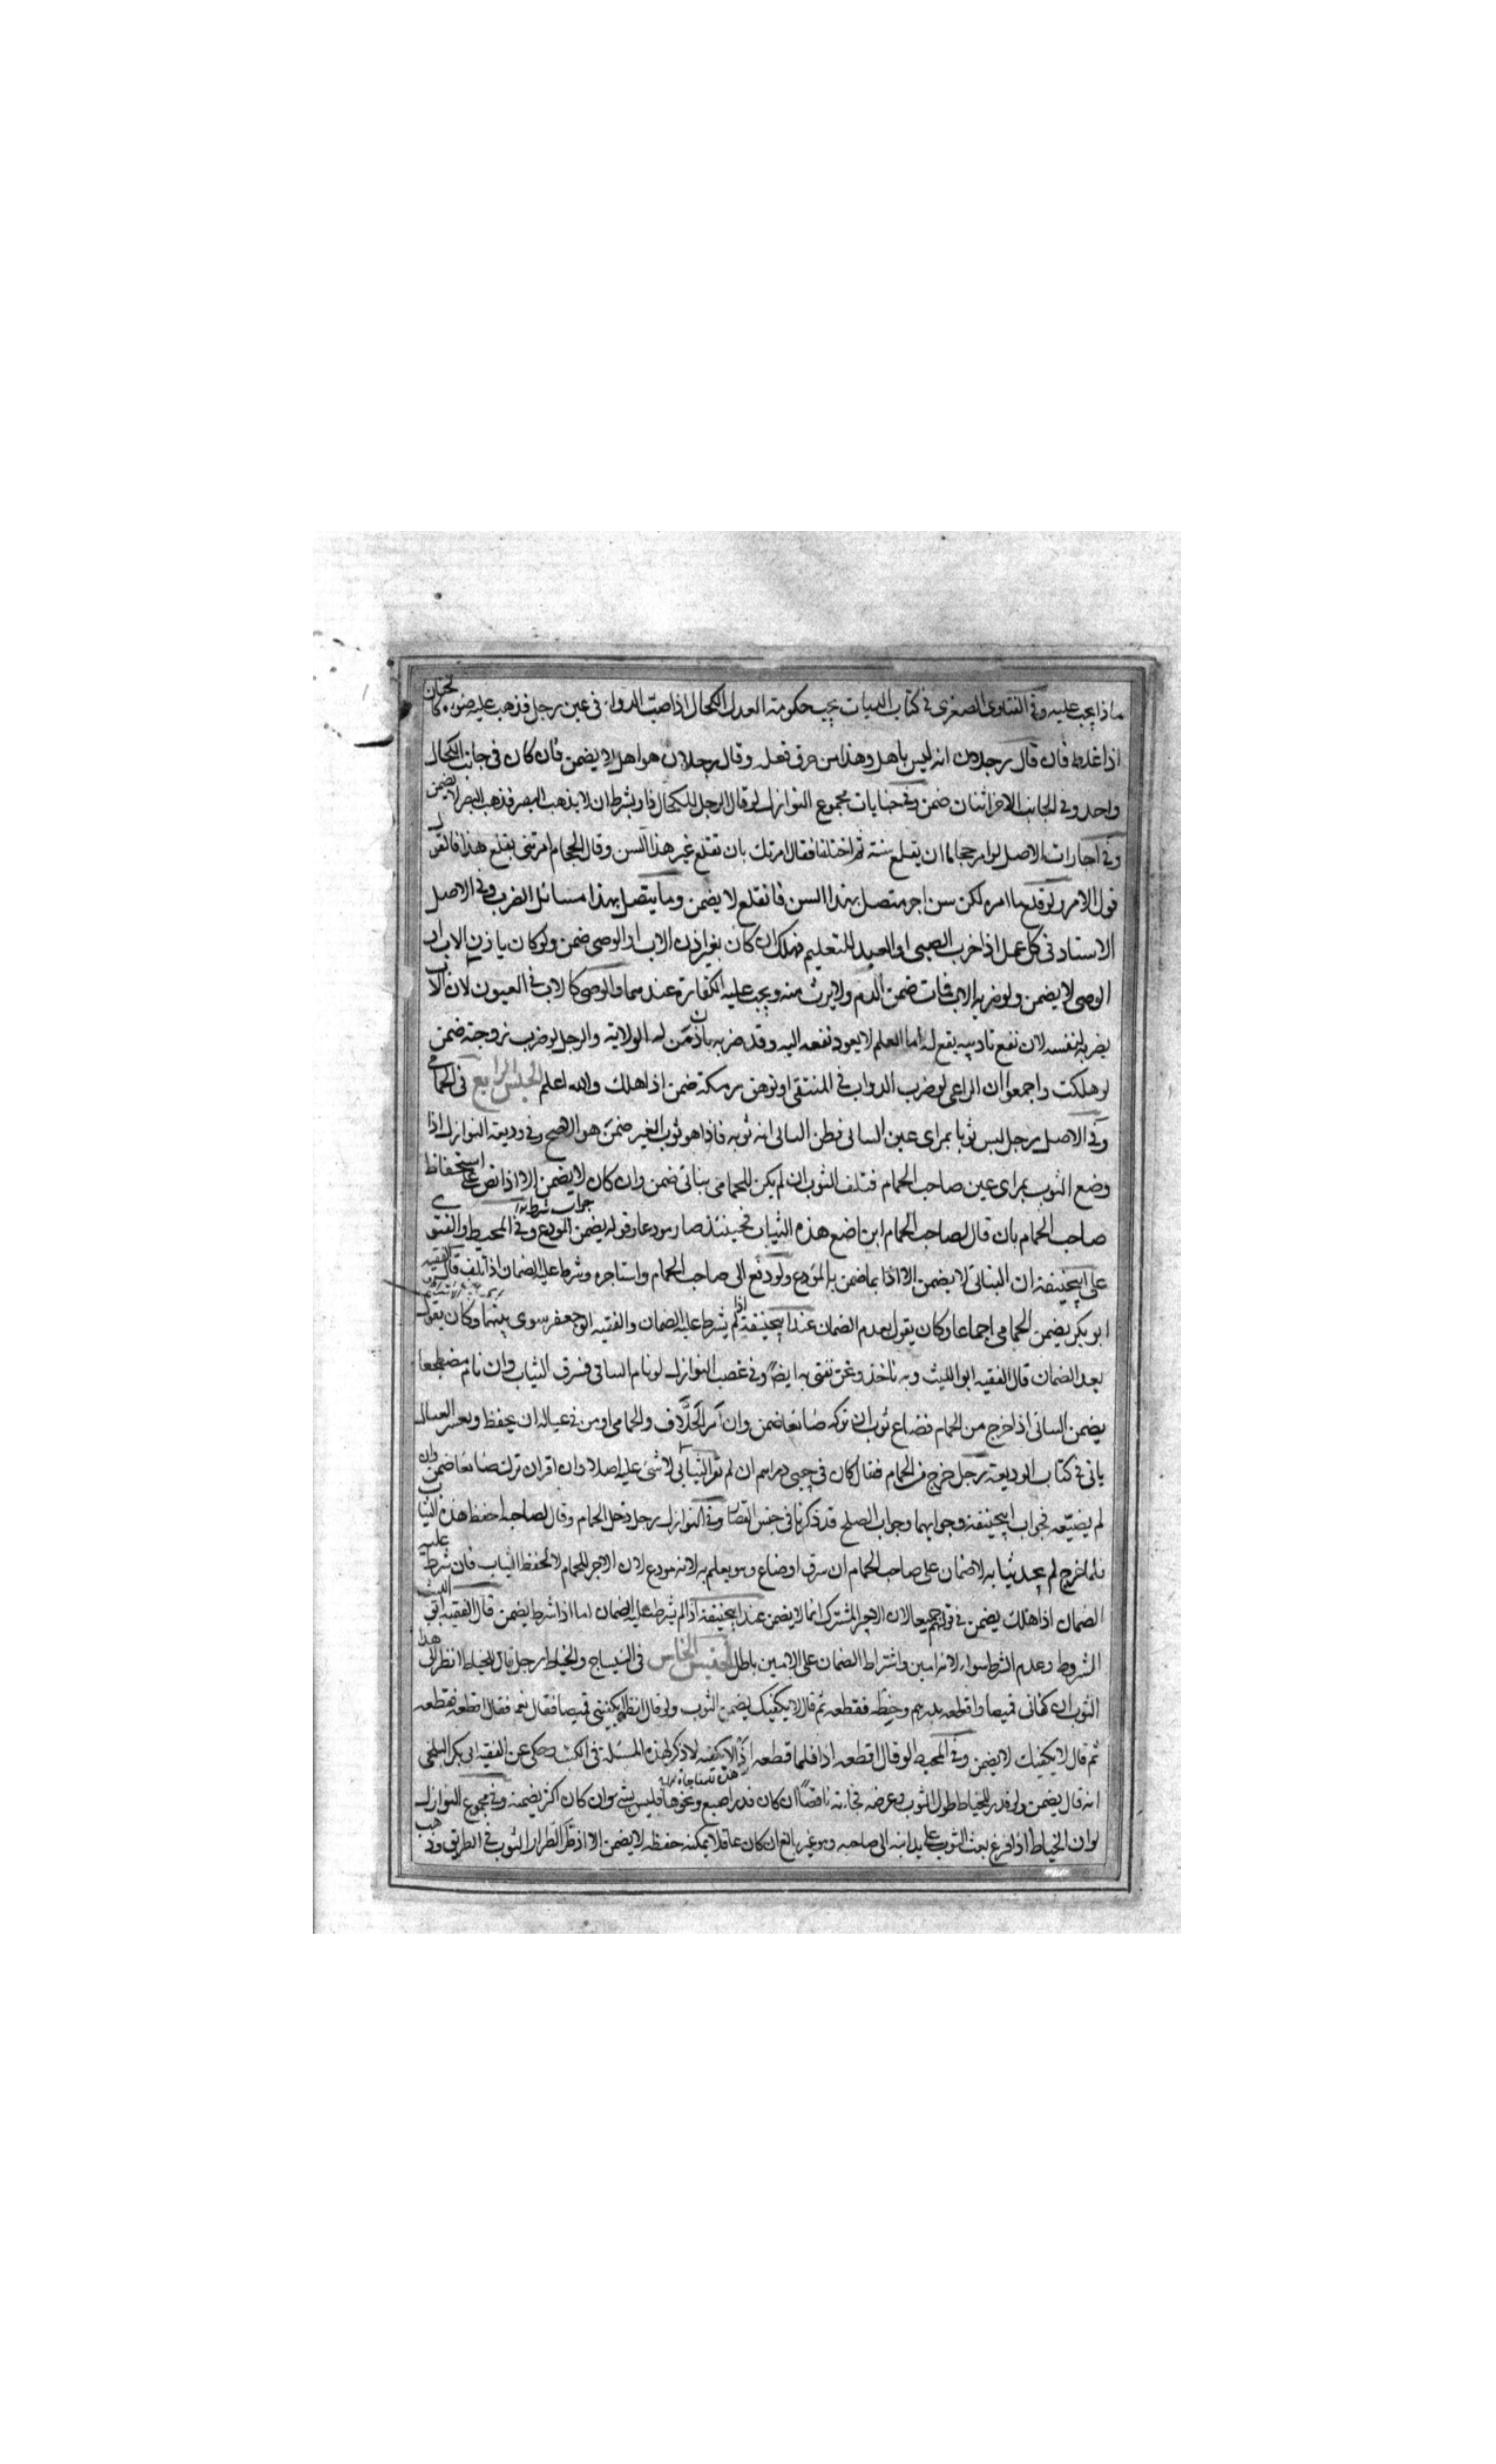 ماذا يجب عليه وفي الفتاوى الصغرى في كتاب الديات يجب حكومة العدل الكحال اذا صب الدواء في عين رجل فذهب عليه ضوءه كالختان
اذا غلط فان قال رجلان انه ليس باهل وهذا من خرق فعله وقال رجلان هو اهل لا يضمن فان كان في جانب الكحال
واحد وفي الجانب الاخر اثنان ضمن وفي جنايات مجموع النوازل لو قال الرجل للكحال داو بشرط ان لا يذهب البصر فذهب البصر لا يضمن
وفي اجارات الاصل لو امر حجاما ان يقلع سنه ثم اختلفا فقال امرتك بان تقلع غير هذا السن وقال الحجام امرتني بقلع هذا فالقول
قول الامر ولو قلع ما امره لكن سن اخر متصل بهذا السن فانقلع لا يضمن ومما يتصل بهذا مسائل الضرب وفي الاصل
الاستاد في كل عمل اذا ضرب الصبي او العبد للتعليم فهلك ان كان بغير اذن الاب او الوصي ضمن ولو كان باذن الاب او
الوصي لا يضمن ولو ضربه الاب فمات ضمن الدم ولا يرث منه ويجب عليه الكفارة عندهما والوصي كالاب في العيون لان الاب
يضربه لنفسه لان نفع تاديبه يقع له اما المعلم لا يعود نفعه اليه وقد ضربه باذن من له الولاية والرجل لو ضرب زوجته ضمن
لو هلكت واجمعوا ان الراعي لو ضرب الدواب في المنتقى او توهق رمكة ضمن اذا هلك والله اعلم الجنس الرابع في الحمامي
وفي الاصل رجل لبس ثوبا بمراى عين الساني فظن الساني انه ثوبه فاذا هو ثوب الغير ضمن هو الاصح وفي وديعة النوازل اذا
وضع الثوب بمراى عين صاحب الحمام فتلف الثوب ان لم يكن للحمامي ثيابي ضمن وان كان لا يضمن الا اذا نص على استحفاظ
صاحب الحمام بان قال لصاحب الحمام اين اضع هذه الثياب فحينئذ صار مودعا وقوله يضمن المودع وفي المحيط والفتوى
على ابيحنيفة ان الثيابي لا يضمن الا اذا بما ضمن به المودع ولو دفع الى صاحب الحمام واستاجره وشرط عليه الضمان اذا تلف قال الفقيه
ابو بكر يضمن الحمامي اجماعا وكان يقول بعدم الضمان عند ابيحنيفة اذا لم يشرط عليه الضمان والفقيه ابو جعفر سوى بينهما وكان يقول
بعد الضمان قال الفقيه ابو الليث وبه ناخذ ونحن نفتي به ايضا وفي غصب النوازل لو نام الساني فسرق الثياب وان نام مضطجعا
يضمن الساني اذا خرج من الحمام فضاع ثوب ان تركه ضائعا ضمن وان امر الحلاف والحمامي او من في عياله ان يحفظ وبعس العيال
ياتي في كتاب الوديعة رجل خرج من الحمام فقال كان في جيبي دراهم ان لم يقر الثيابي لا شيء عليه اصلا وان اقر ان ترك ضائعا ضمن وان
لم يضيعه فجواب ابيحنيفة وجوابهما وجواب الصلح قد ذكرنا في جنس القصار وفي النوازل رجل دخل الحمام وقال لصاحبه احفظ هذه الثياب
فلما خرج لم يجد ثيابه لا ضمان على صاحب الحمام ان سرق او ضاع وهو يعلم به لانه مودع لان الاجر للحمام لا لحفظ الثياب فان شرط عليه
الضمان اذا هلك يضمن في قولهم جميعا لان الاجير المشترك انما لا يضمن عند ابيحنيفة اذا لم يشرط عليه الضمان اما اذا شرط يضمن قال الفقيه ابو الليث
الشروط وعدم الشرط سواء لانه امين واشتراط الضمان على الامين باطل الجنس الخامس في النساج والخياط رجل قال للخياط انظر الى هذا
الثوب ان كفاني قميصا واقطعه بدرهم وخيطه فقطعه ثم قال لا يكفيك يضمن الثوب ولو قال انظر ايكفيني قميصا فقال نعم فقال اقطعه فقطعه
ثم قال لا يكفيك لا يضمن وفي المحيط لو قال اقطعه اذا فلما قطعه اذا لا يكفيه لا ذكر لهذه المسئلة في الكتب وحكى عن الفقيه ابي بكر البلخي
انه قال يضمن ولو قدر للخياط طول الثوب وعرضه فجاء به ناقصا ان كان قدر اصبع ونحوها فليس بشيء وان كان اكثر يضمنه وفي مجموع النوازل
لو ان الخياط اذا فرغ بعث الثوب على يد ابنه الى صاحبه وهو غير بالغ ان كان عاقلا يمكنه حفظه لا يضمن الا اذ طر الطرار الثوب في الطريق وذهب